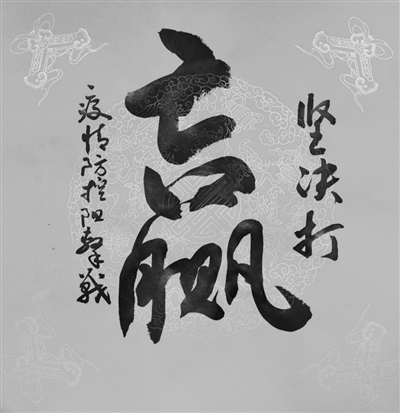 坚决打
赢
疫情防控阻擊戰